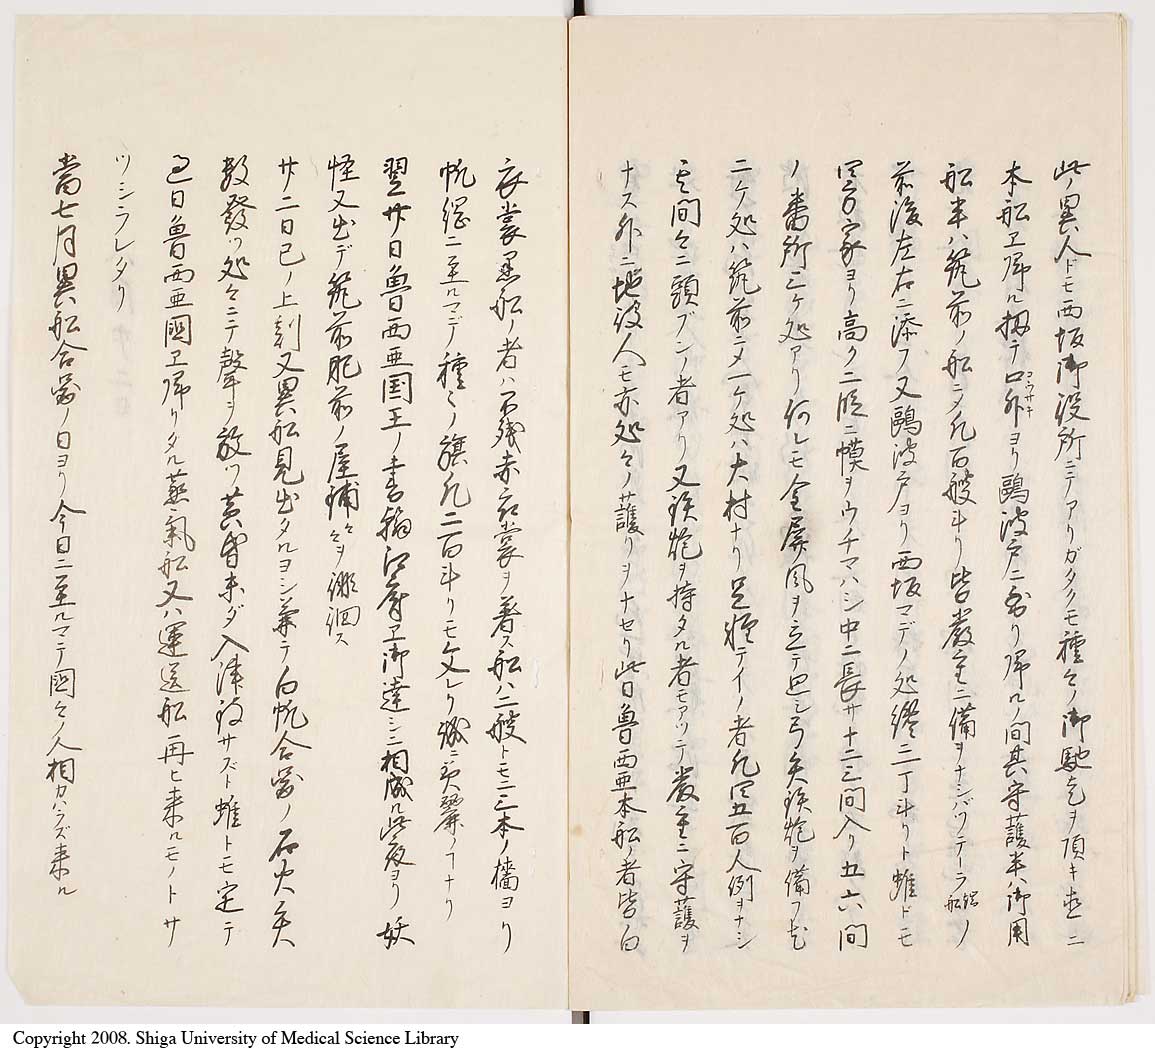 此ノ異人ドモ西坂御役所ニテアリガタクモ種々ノ御馳走ヲ頂キ直ニ
本船ヱ帰ル扨テ口外ヨリ鷗波戸ニ至リ帰ルノ間其守護半ハ御用
コウサキ
船半ハ筑前ノ船ニメ凡百艘斗リ皆厳重ニ備ヲナシバツテーラ船ノ
前後左右ニ添フ又鷗波戸ヨリ西坂マデノ処纔二丁斗リト雖ドモ
四方家ヨリ高ク二段ニ幙ヲウチマハシ中ニ長サ十二三間入リ五六間
ノ番所三ケ処アリ何レモ金屏風ヲ立テ廻シ弓矢鉄炮ヲ備フ尤
二ケ処ハ筑前ニメ一ケ処ハ大村ナリ足軽テイノ者凡四五百人例ヲナシ
其間々ニ頭ブンノ者アリ又鉄炮ヲ持タル者モアツテ厳重ニ守護ヲ
ナス外ニ地役人モ亦処々ノ護リヲナセリ此日魯西亜本船ノ者皆白
衣裳黒船ノ者ハ不残赤衣裳ヲ着ス船ハ二艘トモニ三本ノ檣ヨリ
帆縄ニ至ルマデ種々ノ旗凡二百斗リモ文レリ誠ニ美麗ノヿナリ
翌廿日魯西亜国王ノ書翰江府ヱ御達シニ相成ル此夜ヨリ妖
怪又出デ筑前肥前ノ屋鋪々々ヲ徘徊ス
廿二日已ノ上刻又異船見出タルヨシ兼テ白帆合図ノ石火矢
数發ツ処々ニテ聲ヲ放ツ黄昏未ダ入津致サズト雖トモ定テ
過日魯西亜國ヱ帰リタル蒸氣船又ハ運送船再ヒ来ルモノトサ
ツシラレタリ
當七月異船合図ノ日ヨリ今日ニ至ルマテ國々ノ人相カハラズ来ル
Copyright 2008. Shiga University of Medical Science Library